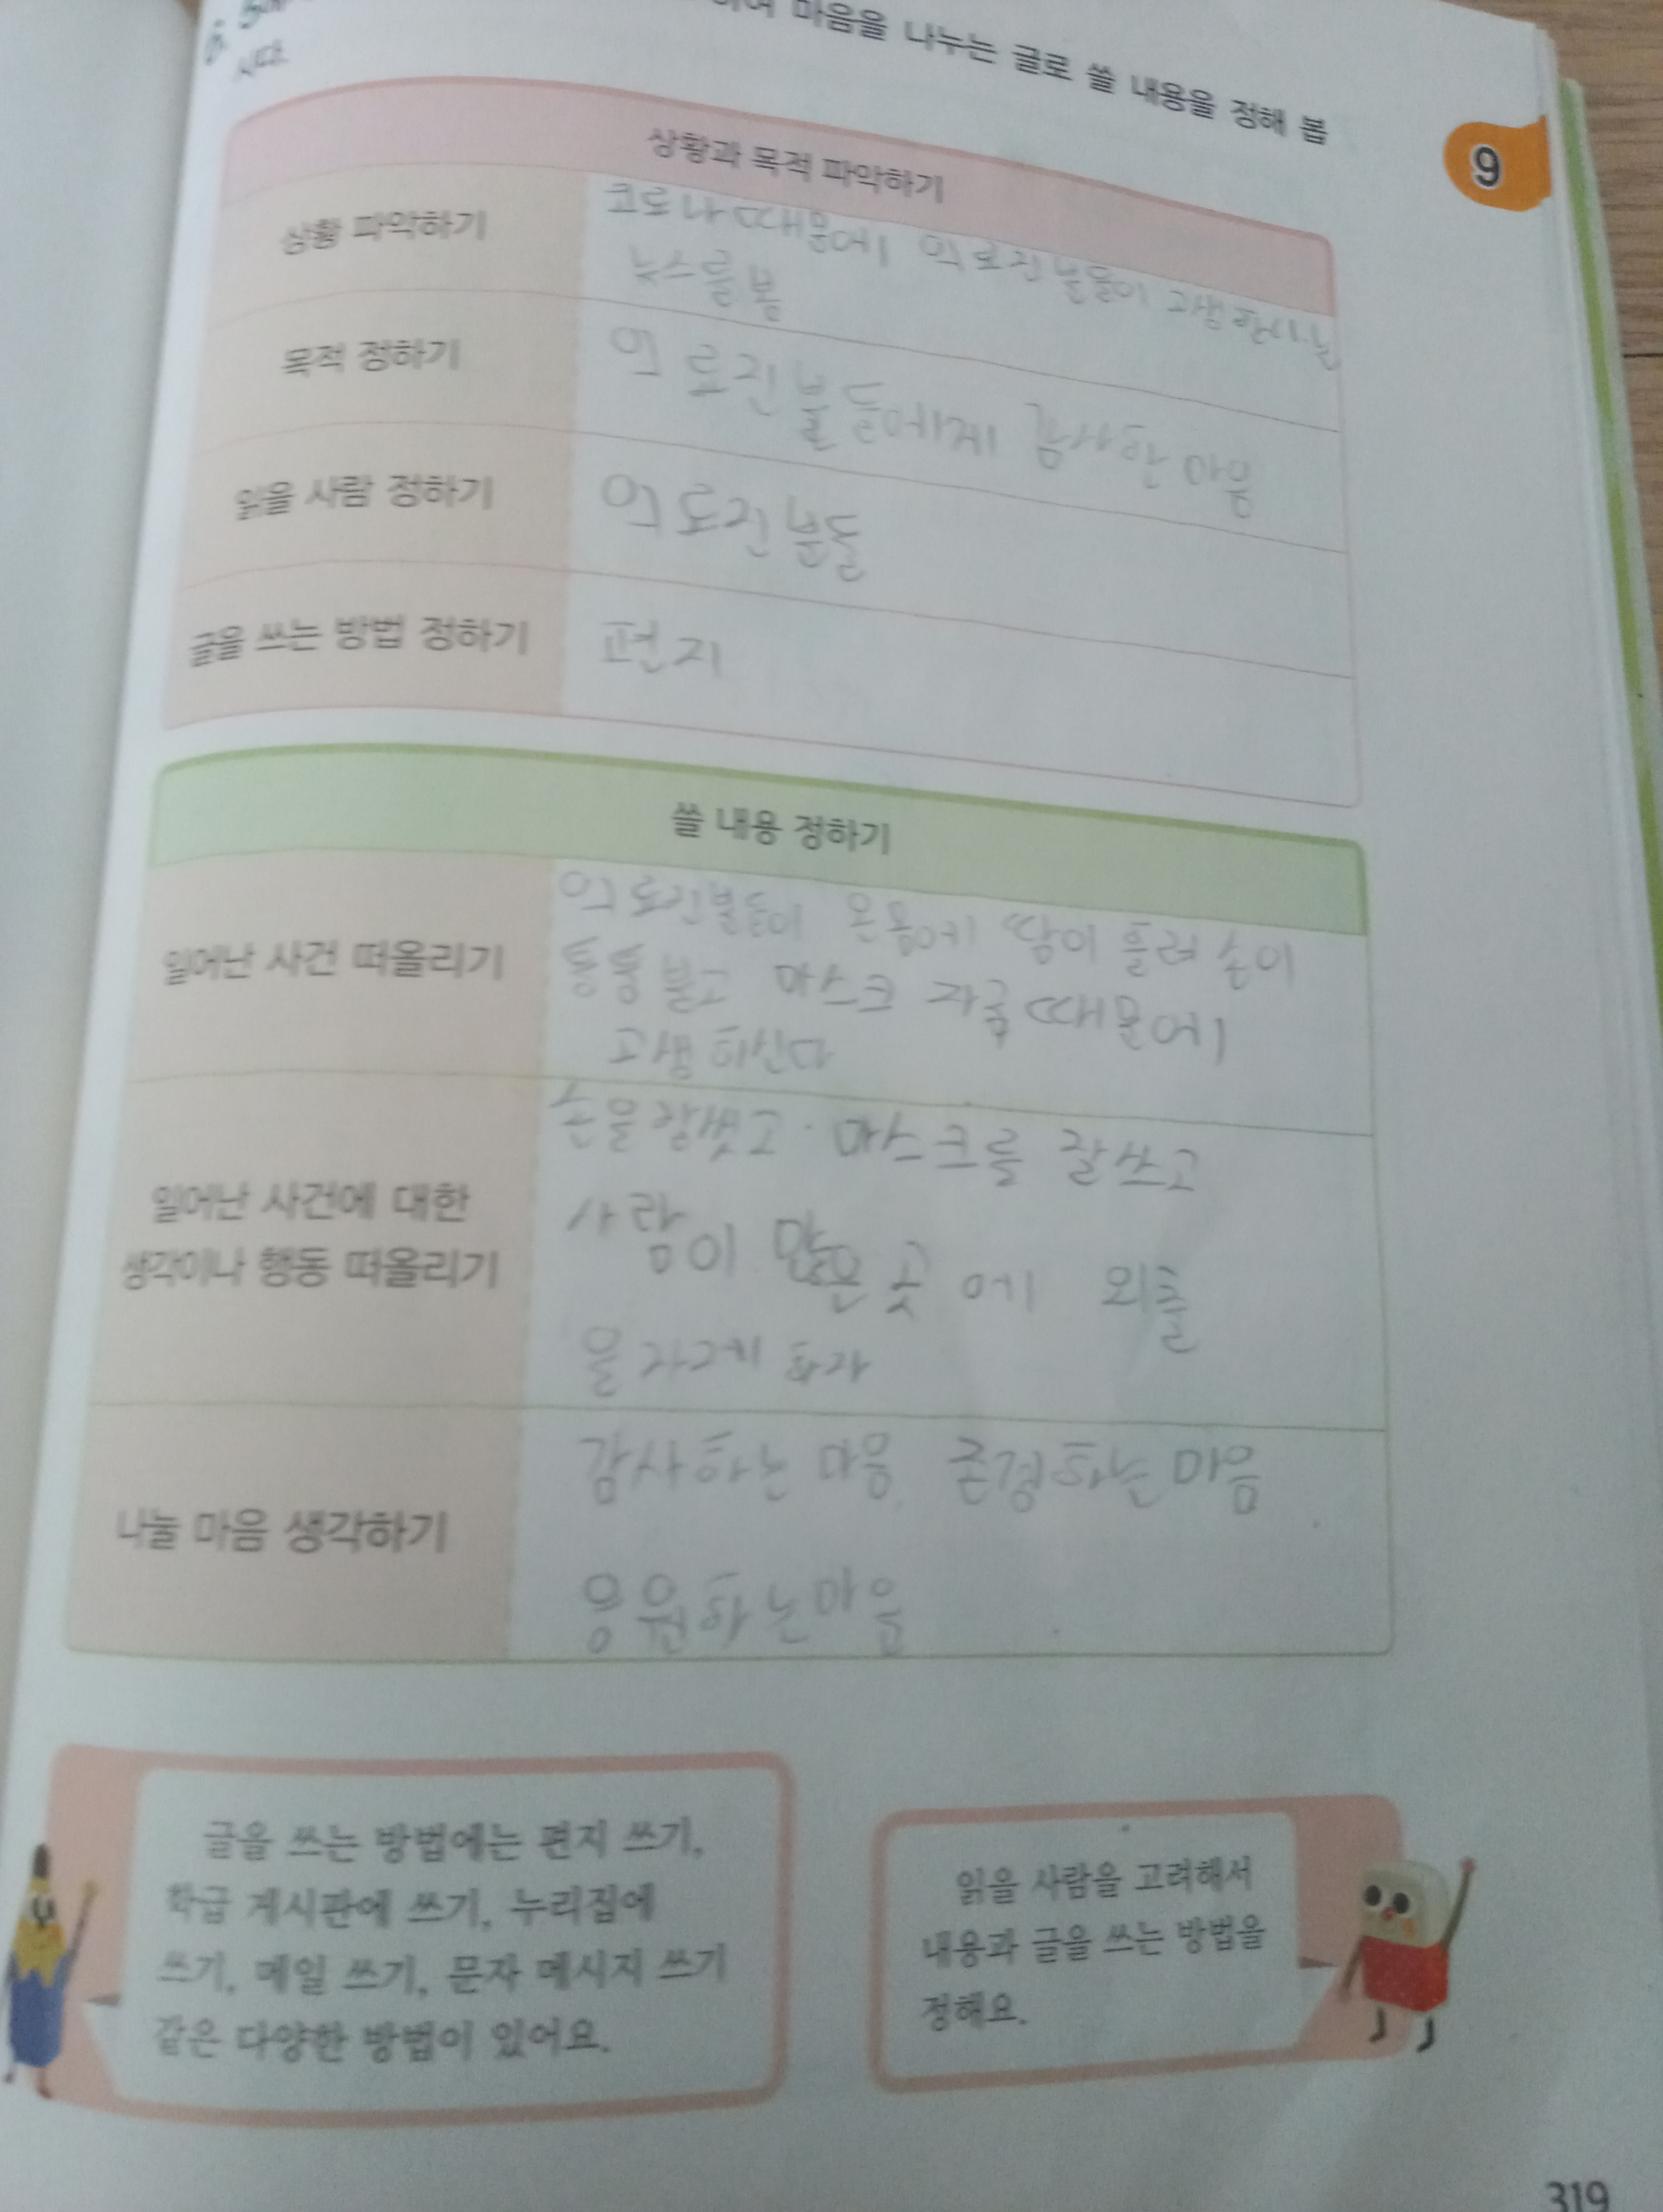 6. 하여 마음을 나누는 글로 쓸 내용을 정해 봅
시다.
9
상황과 목적 파악하기
상황 파악하기
코로나때문에 의료진분들이 고생하시는
뉴스를봄
목적 정하기
의료진분들에게 감사한 마음
읽을 사람 정하기
의료진분들
글을 쓰는 방법 정하기
편지
쓸 내용 정하기
일어난 사건 떠올리기
의료진분들이 온몸에 땀이 흘러 손이
퉁퉁 불고 마스크 자국때문에
고생하신다
일어난 사건에 대한
생각이나 행동 떠올리기
손을잘씻고 마스크를 잘쓰고
사람이 많은곳에 외출
을 자제하자
나눌 마음 생각하기
감사하는 마음, 존경하는마음
응원하는마음
글을 쓰는 방법에는 편지 쓰기,
학급 게시판에 쓰기, 누리집에
쓰기, 메일 쓰기, 문자 메시지 쓰기
같은 다양한 방법이 있어요.
읽을 사람을 고려해서
내용과 글을 쓰는 방법을
정해요.
319